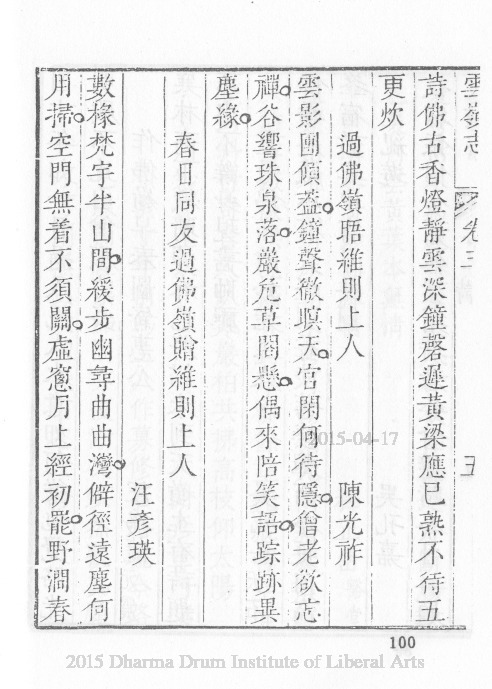 雲嶺志 卷三 五
詩佛古香燈靜雲深鐘磬遲黃粱應已熟不待五
更炊
過佛嶺晤維則上人 陳光祚
雲影團傾葢鐘聲徹暝天官閑何待隱僧老欲忘
禪谷響珠泉落巖危草閣懸偶來陪笑語踪跡異
塵緣
春日同友過佛嶺贈維則上人
汪彥瑛
數椽梵宇半山間緩步幽尋曲曲灣僻徑遠塵何
用掃空門無着不須關虛窻月上經初罷野澗春
2015-04-17
100
2015 Dharma Drum Institute of Liberal Arts